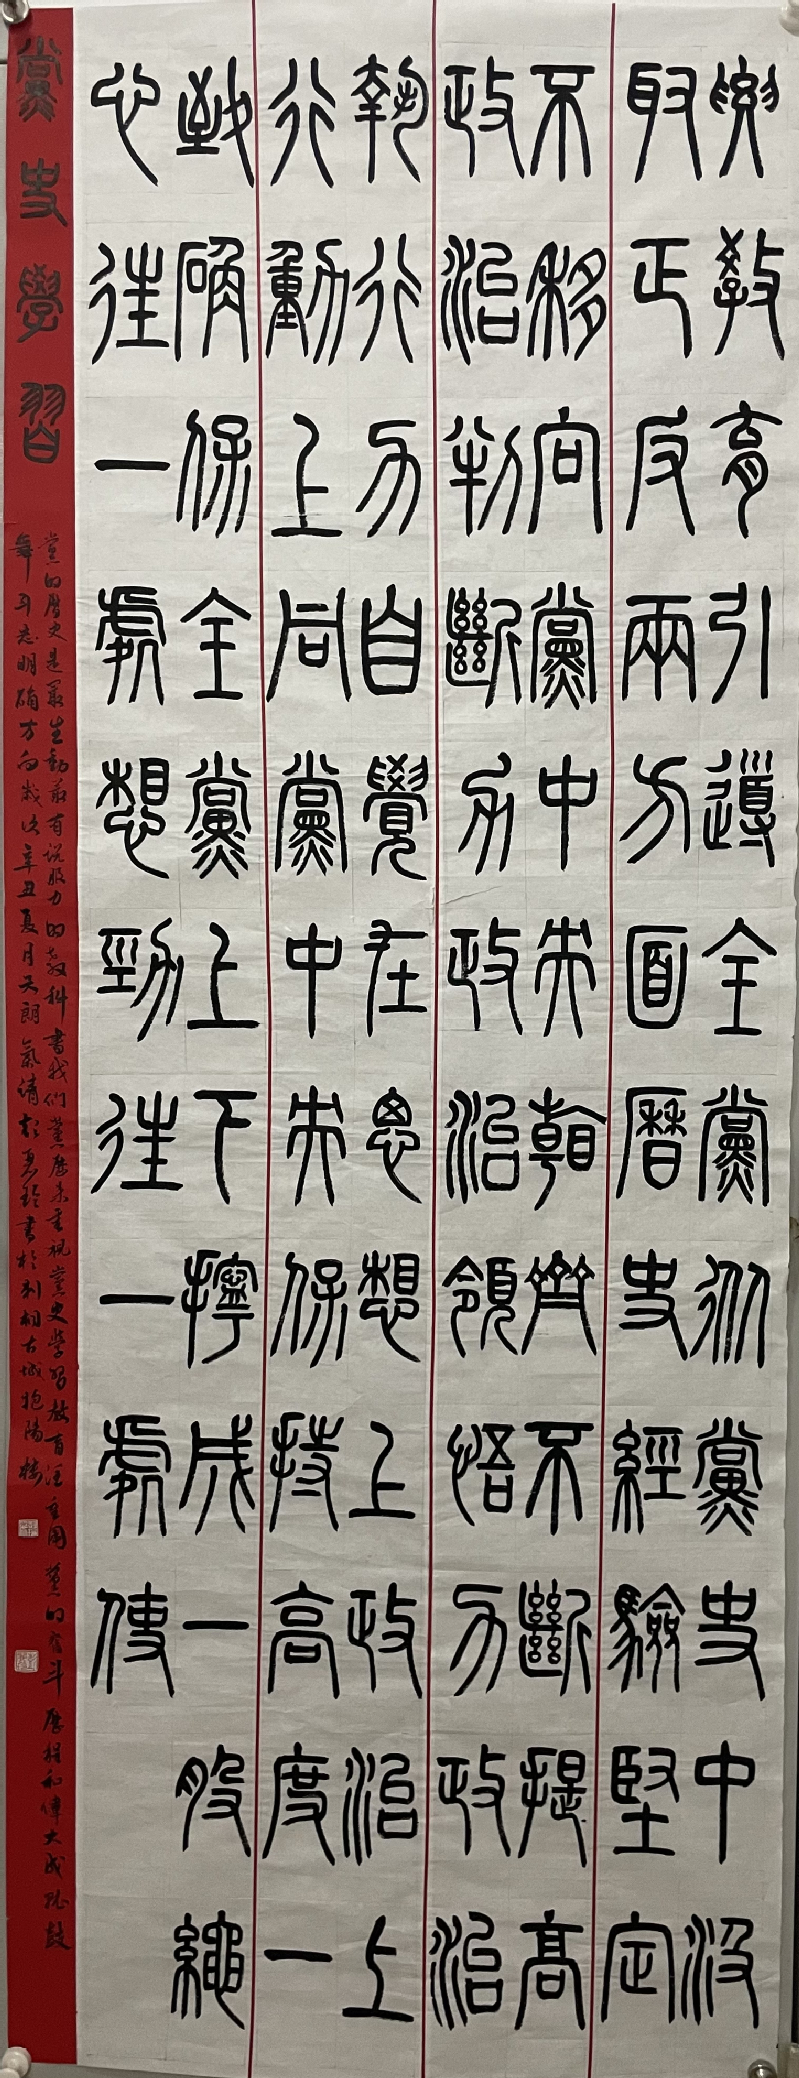 要教育引導全黨從黨史中汲
取正反兩方面曆史經驗堅定
不移向黨中央看齊不斷提高
政治判斷力政治領悟力政治
執行力自覺在思想上政治上
行動上同黨中央保持高度一
致確保全黨上下擰成一股繩
心往一處想勁往一處使
黨史學習
黨的曆史是最生動最有说服力的教科書我们黨歷来重視黨史學習教育注重用黨的奋斗歷程和偉大成就鼓
舞斗志明确方向歲次辛丑夏月天朗氣清書於古城抱陽楼